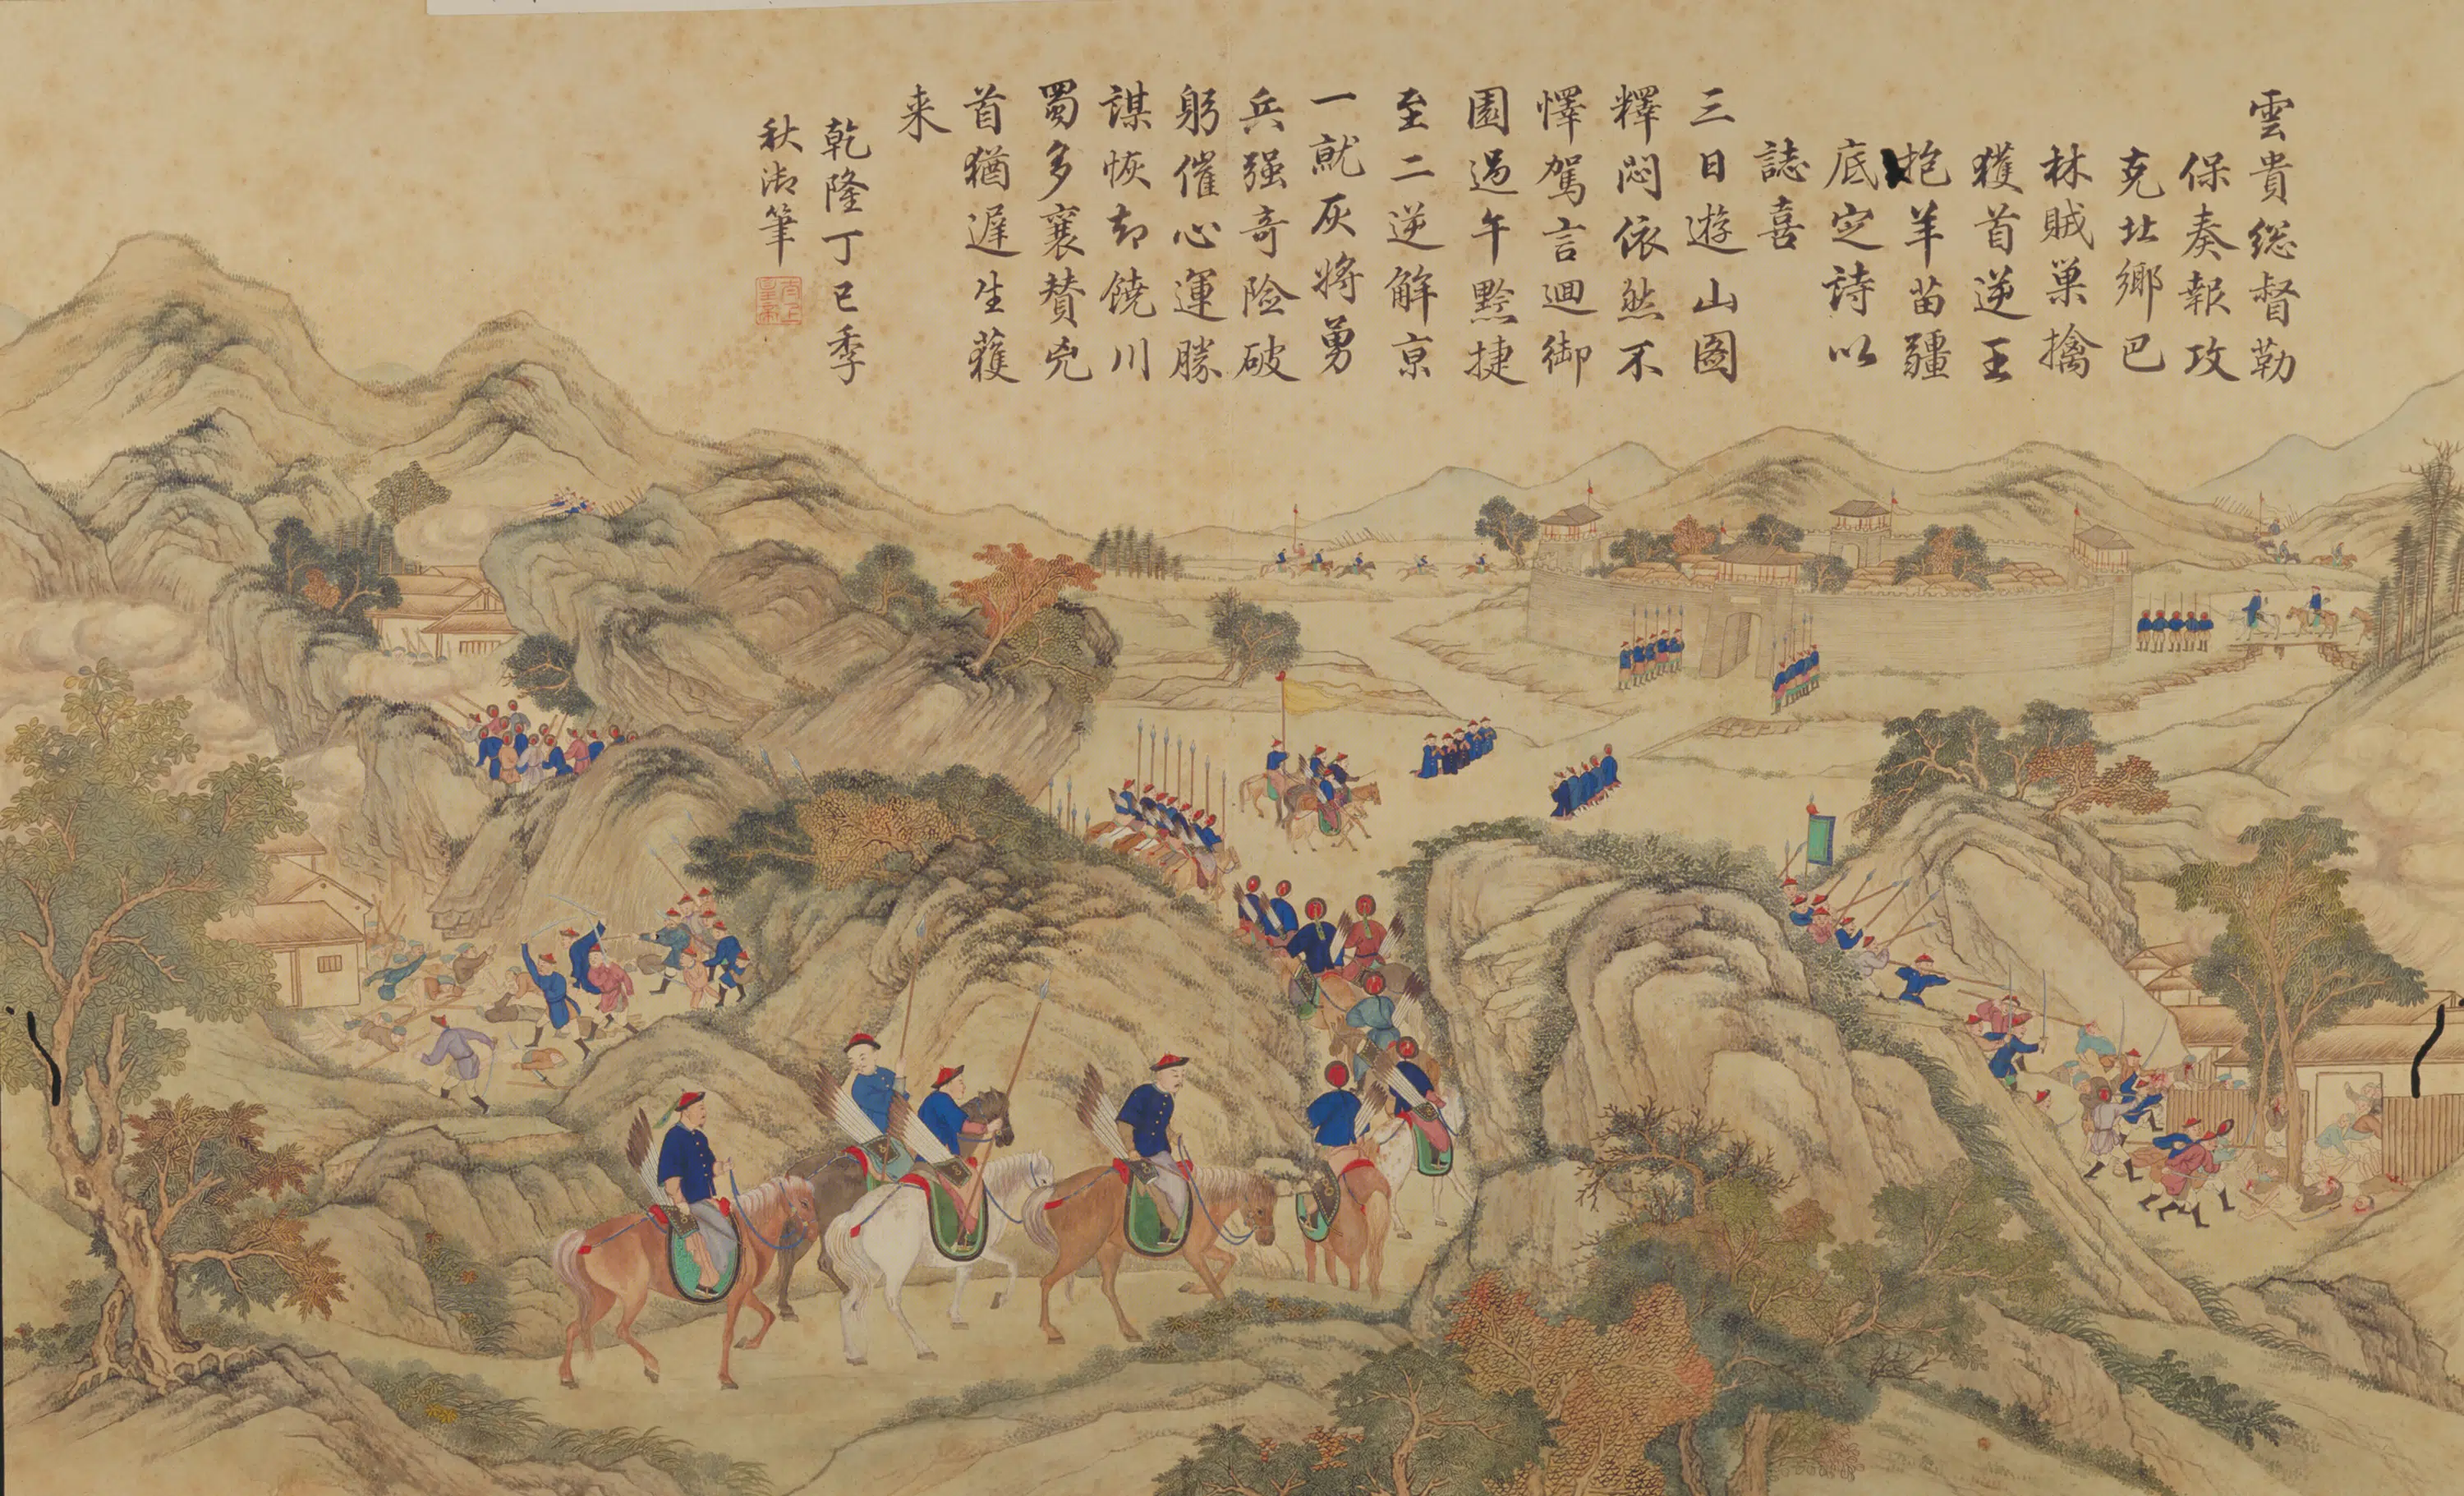 雲貴総督勒
保奏報攻
克北鄉巴
林賊巢擒
獲首逆王
抱羊苗疆
底定詩以
誌喜
三日遊山圖
釋悶依然不
懌駕言迴御
園過午黔捷
至二逆解京
一就灰將勇
兵强奇險破
躬催心運勝
謀恢却饒川
蜀多襄贊兇
首猶遲生獲
来
乾隆丁巳季
秋御筆
太上
皇帝